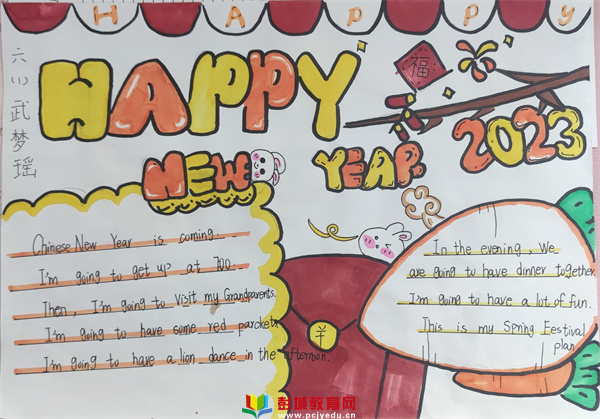 HAPPY
HAPPY
2023
NEW YEAR
福
六(1)武梦瑶
Chinese New Year is coming.
I'm going to get up at 700.
Then, I'm going to visit my Grandparents.
I'm going to have some red parckets
I'm going to have a lion dance in the afternoon.
¥
In the evening, We
are going to have dinner together.
I'm going to have a lot of fun.
This is my Spring Eestival
plan
彭城教育网
www.pcjyedu.cn